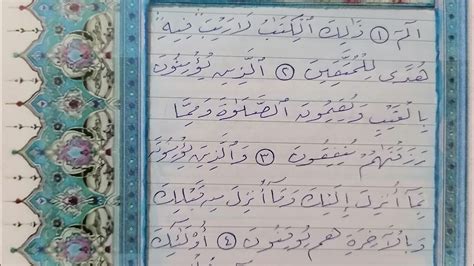 الٓمٓ ١ ذَٰلِكَ ٱلْكِتَٰبُ لَا رَيْبَ فِيهِ
هُدًى لِّلْمُتَّقِينَ ٢ ٱلَّذِينَ يُؤْمِنُونَ
بِٱلْغَيْبِ وَيُقِيمُونَ ٱلصَّلَوٰةَ وَمِمَّا
رَزَقْنَٰهُمْ يُنفِقُونَ ٣ وَٱلَّذِينَ يُؤْمِنُونَ
بِمَآ أُنزِلَ إِلَيْكَ وَمَآ أُنزِلَ مِن قَبْلِكَ
وَبِٱلْءَاخِرَةِ هُمْ يُوقِنُونَ ٤ أُو۟لَٰٓئِكَ